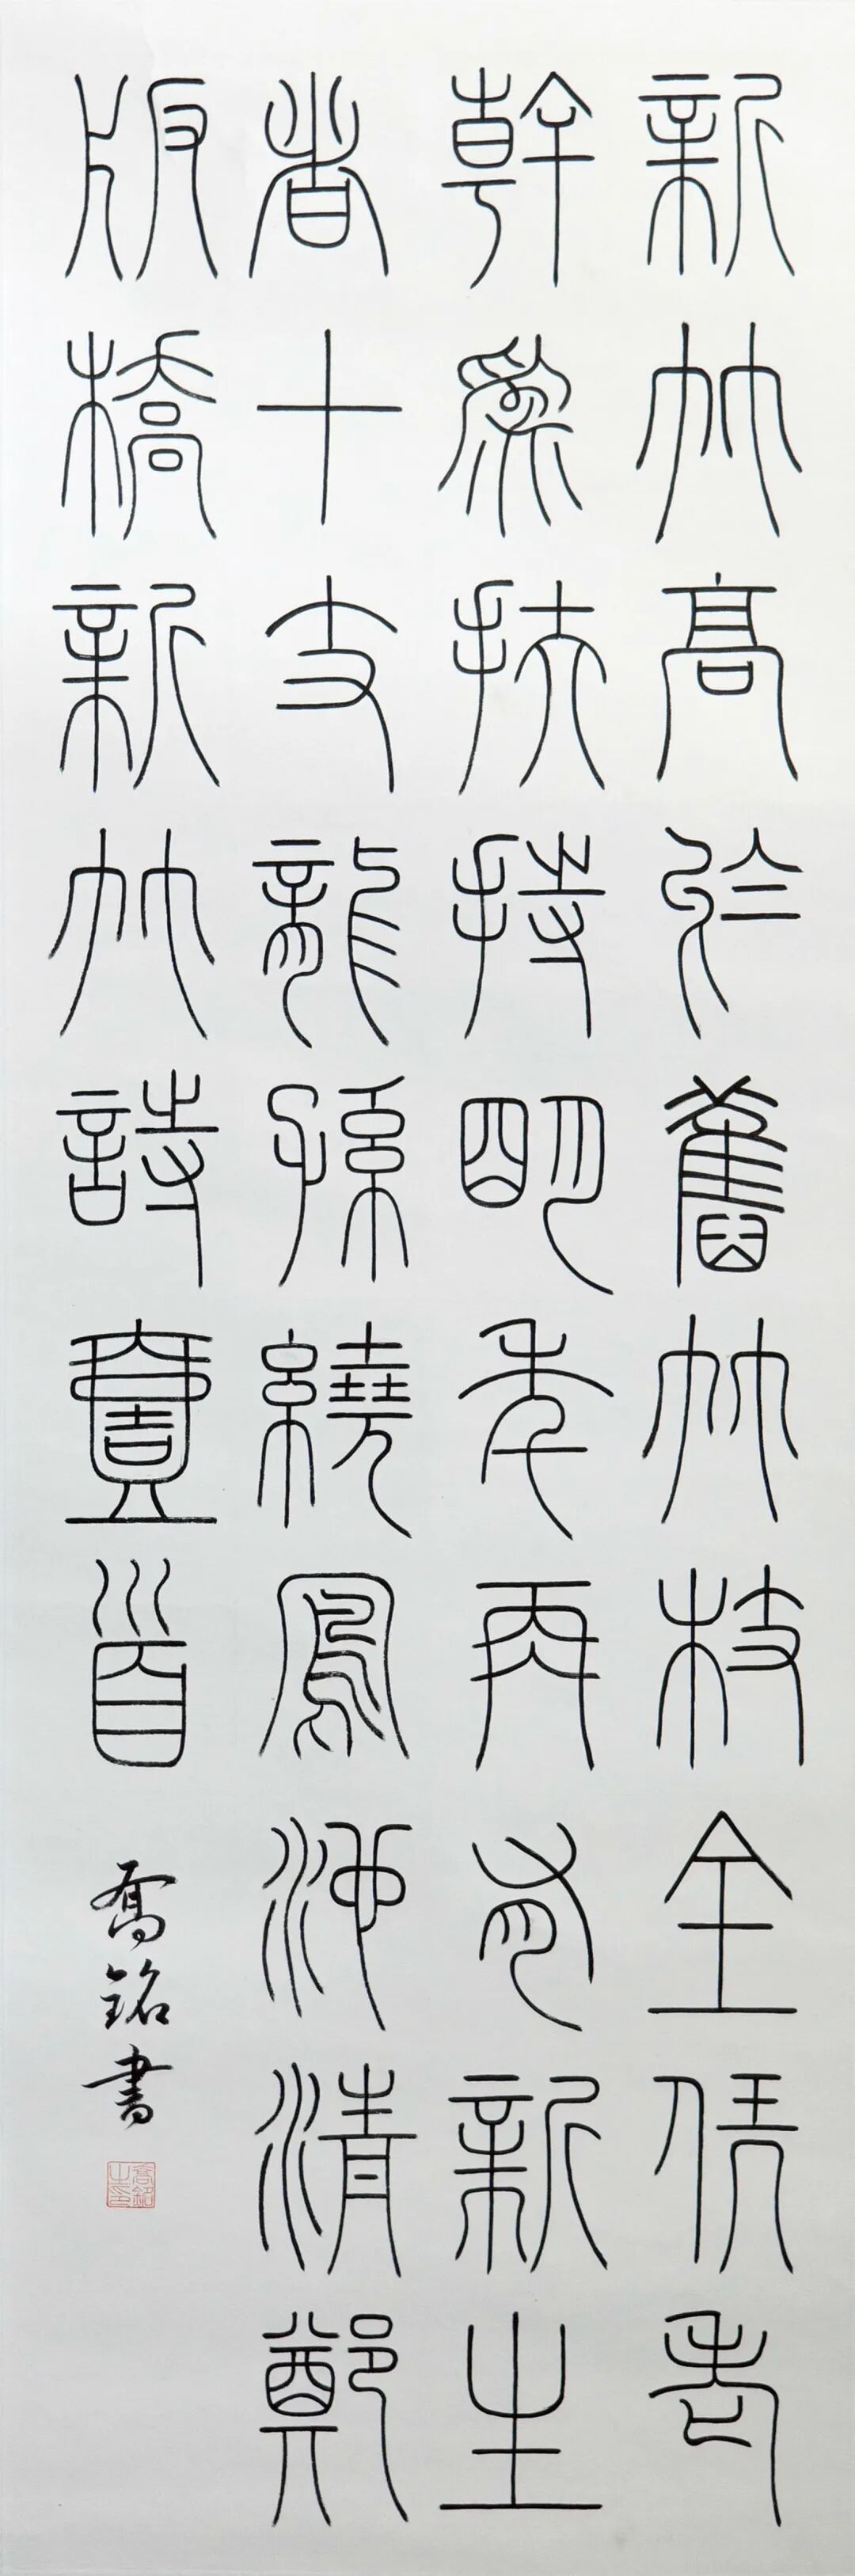 新竹高於舊竹枝全凭老
幹為扶持明年再有新生
者十丈龍孫繞鳳池清鄭
版橋新竹詩壹首
喬銘書
喬銘之印